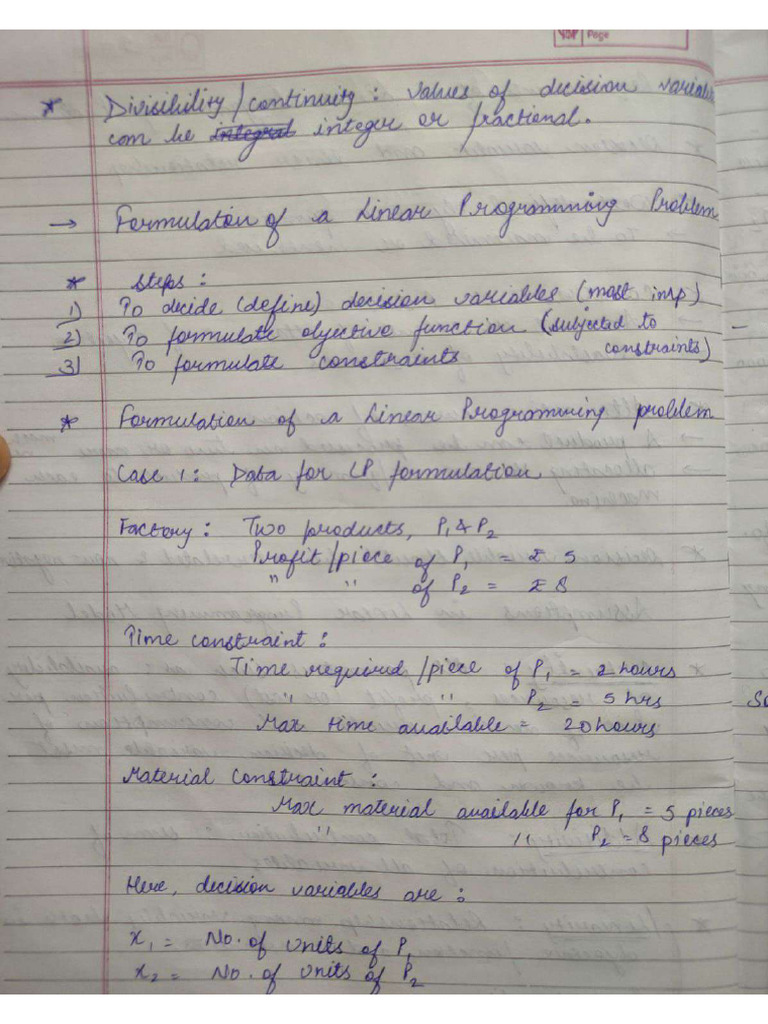 Page
* Divisibility / continuity : values of decision variable
can be integral integer or fractional.
→ Formulation of a Linear Programming Problem
* Steps :
1) To decide (define) decision variables (most imp)
2) To formulate objective function (subjected to
constraints)
3) To formulate constraints
* Formulation of a Linear Programming problem
Case 1 : Data for LP formulation
Factory : Two products, P₁ & P₂
Profit / piece of P₁ = ₹ 5
" " of P₂ = ₹ 8
Time constraint :
Time required / piece of P₁ = 2 hours
" " P₂ = 5 hrs
Max time available = 20 hours
Material constraint :
Max material available for P₁ = 5 pieces
" " P₂ = 8 pieces
Here, decision variables are :
x₁ = No. of units of P₁
x₂ = No. of units of P₂